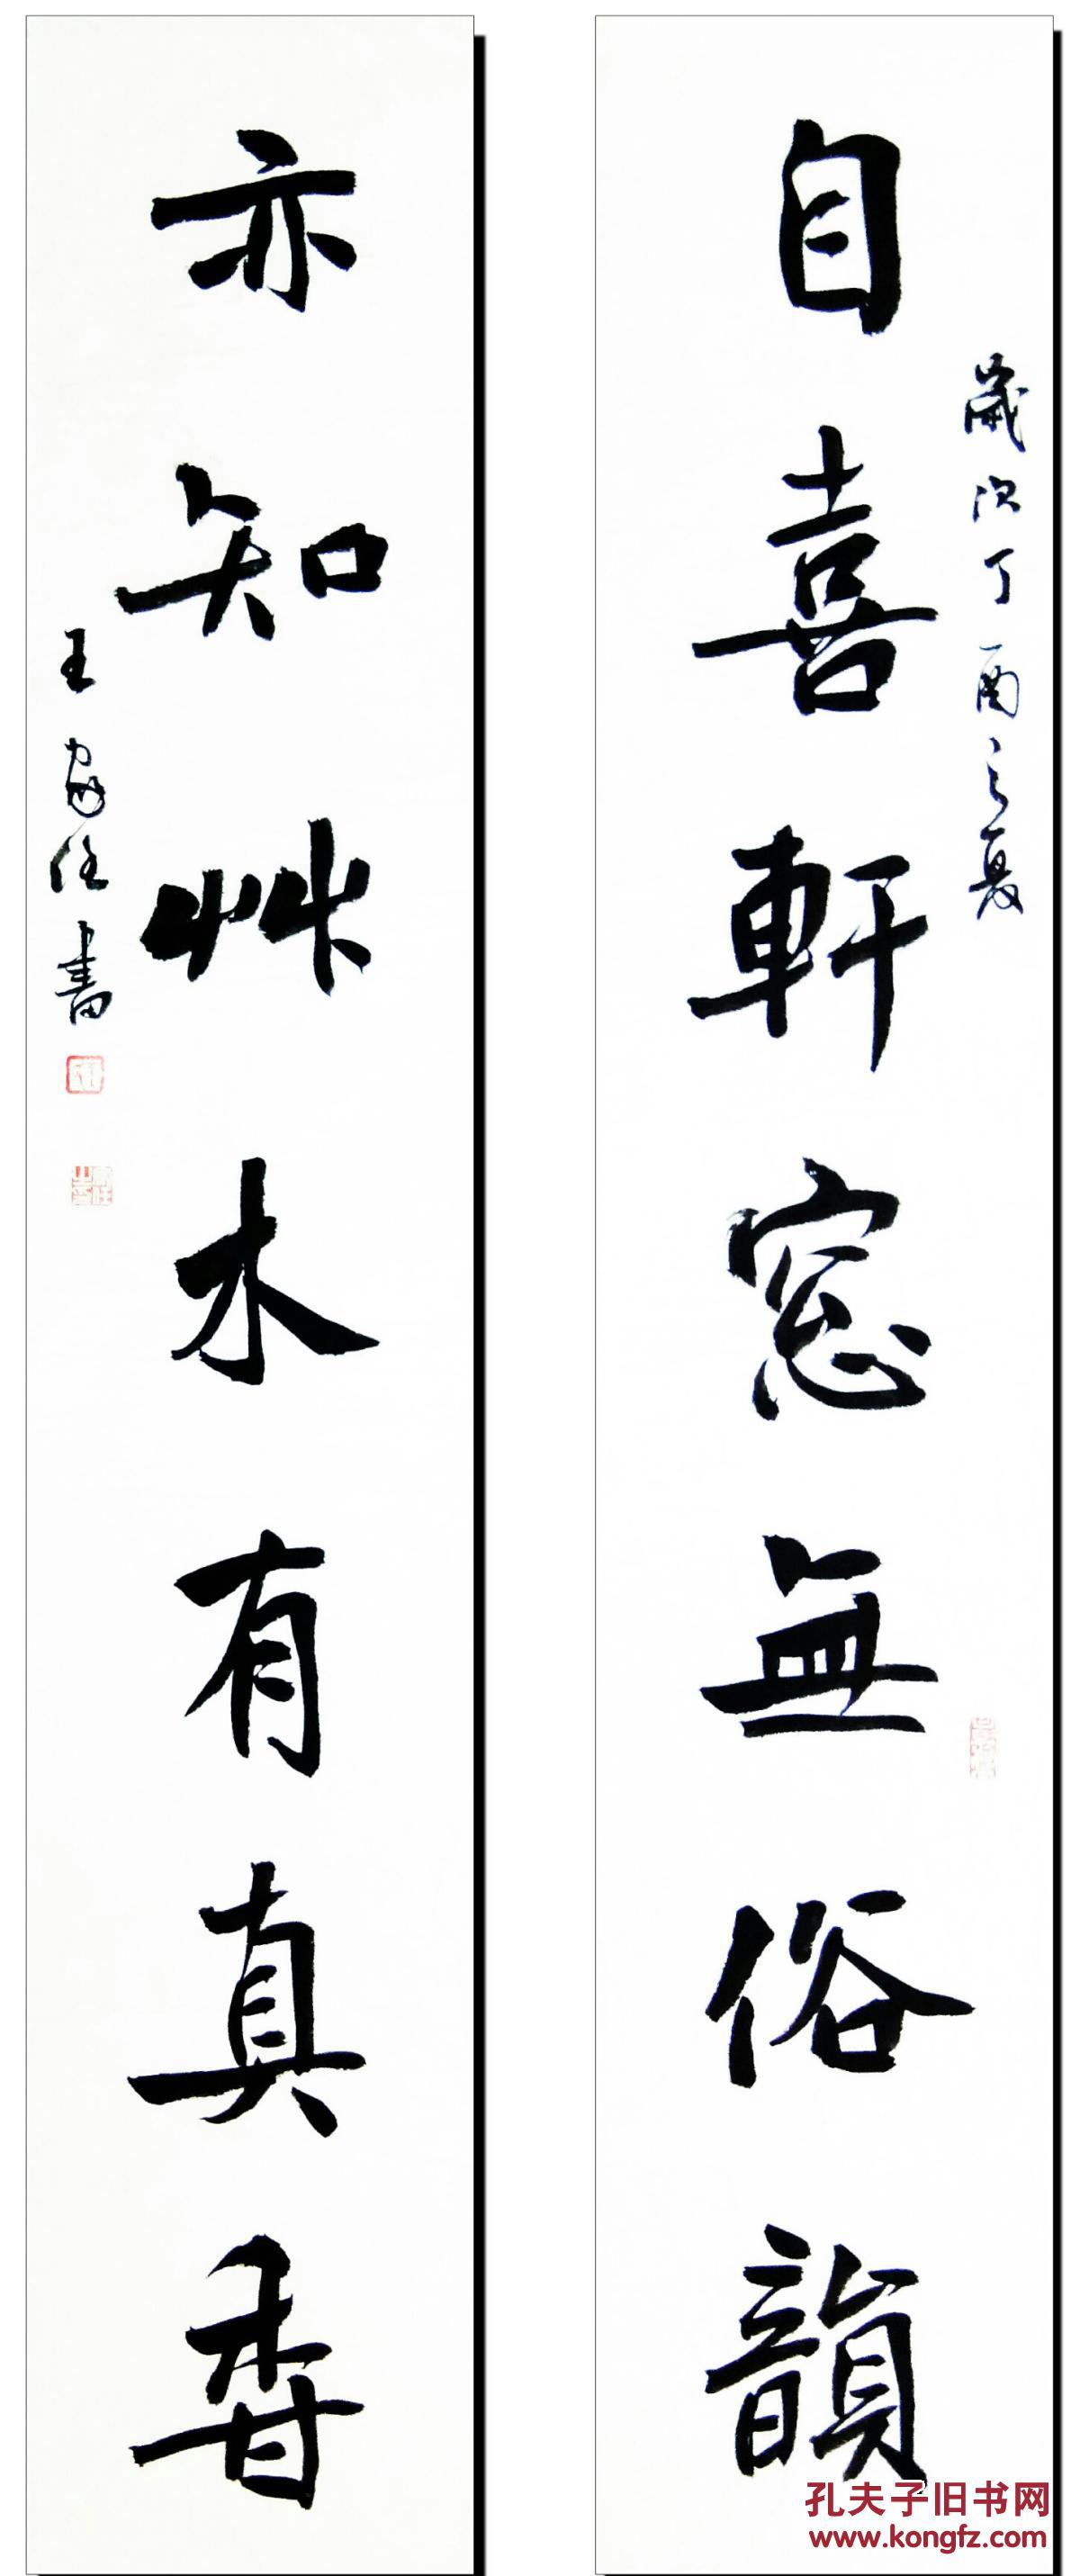 自喜軒窓無俗韻
歲次丁酉之夏
亦知艸木有真香
王家任書
孔夫子旧书网
www.kongfz.com